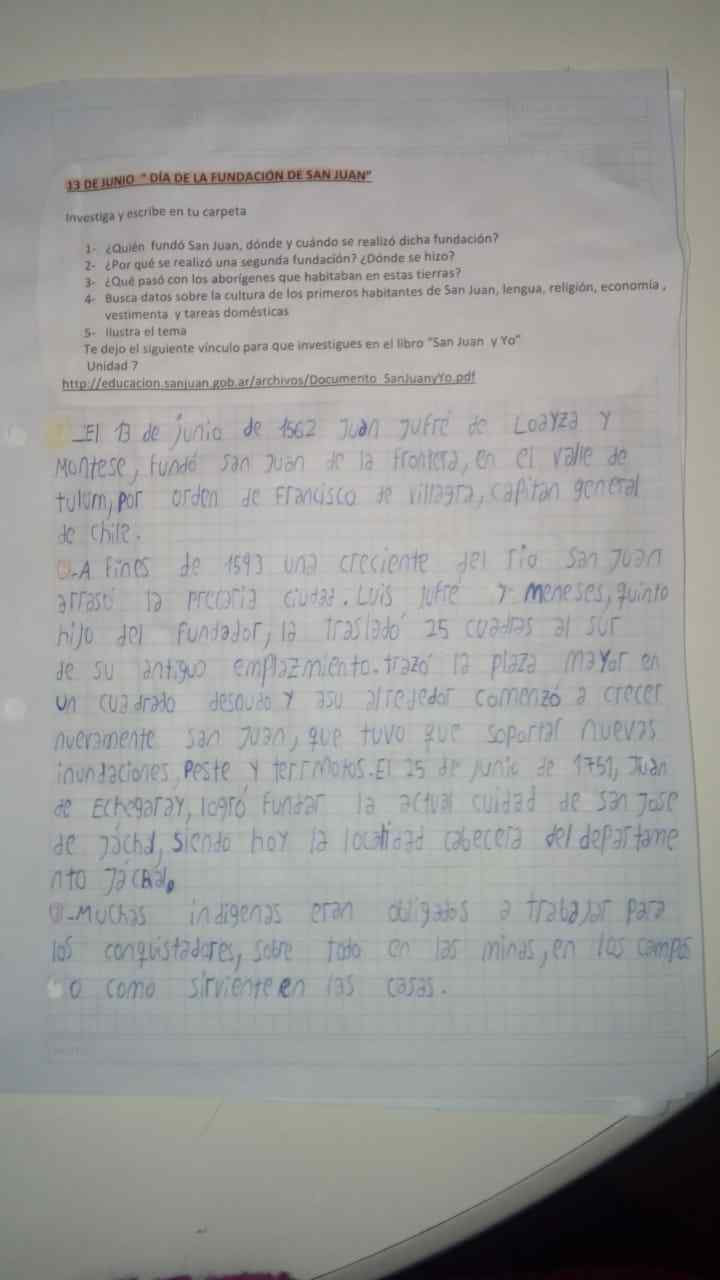 13 DE JUNIO " DÍA DE LA FUNDACIÓN DE SAN JUAN"
Investiga y escribe en tu carpeta
1- ¿Quién fundó San Juan, dónde y cuándo se realizó dicha fundación?
2- ¿Por qué se realizó una segunda fundación? ¿Dónde se hizo?
3- ¿Qué pasó con los aborígenes que habitaban en estas tierras?
4- Busca datos sobre la cultura de los primeros habitantes de San Juan, lengua, religión, economía ,
vestimenta y tareas domésticas
5- Ilustra el tema
Te dejo el siguiente vínculo para que investigues en el libro "San Juan y Yo"
Unidad 7
http://educacion.sanjuan.gob.ar/archivos/Documento_SanJuanyYo.pdf
El 13 de junio de 1562 Juan Jufré de Loayza y
Montese, fundó San Juan de la frontera, en el valle de
tulum, por orden de Francisco de villagra, capitan general
de chile.
-A fines de 1593 una creciente del rio San Juan
arrastó la precaria ciudad. Luis Jufré y meneses, quinto
hijo del fundador, la trasladó 25 cuadras al sur
de su antiguo emplazmiento. trazó la plaza mayor en
un cuadrado desnudo y asu alrededor comenzó a crecer
nuevamente san Juan, que tuvo que soportar nuevas
inundaciones, peste y terrmotos. El 25 de junio de 1751, Juan
de Echegaray, logró fundar la actual cuidad de san Jose
de Jáchal, siendo hoy la localidad cabecera del departame
nto Jáchal.
-Muchas indígenas eran obligados a trabajar para
los conquistadores, sobre todo en las minas, en los campos
o como sirviente en las casas.